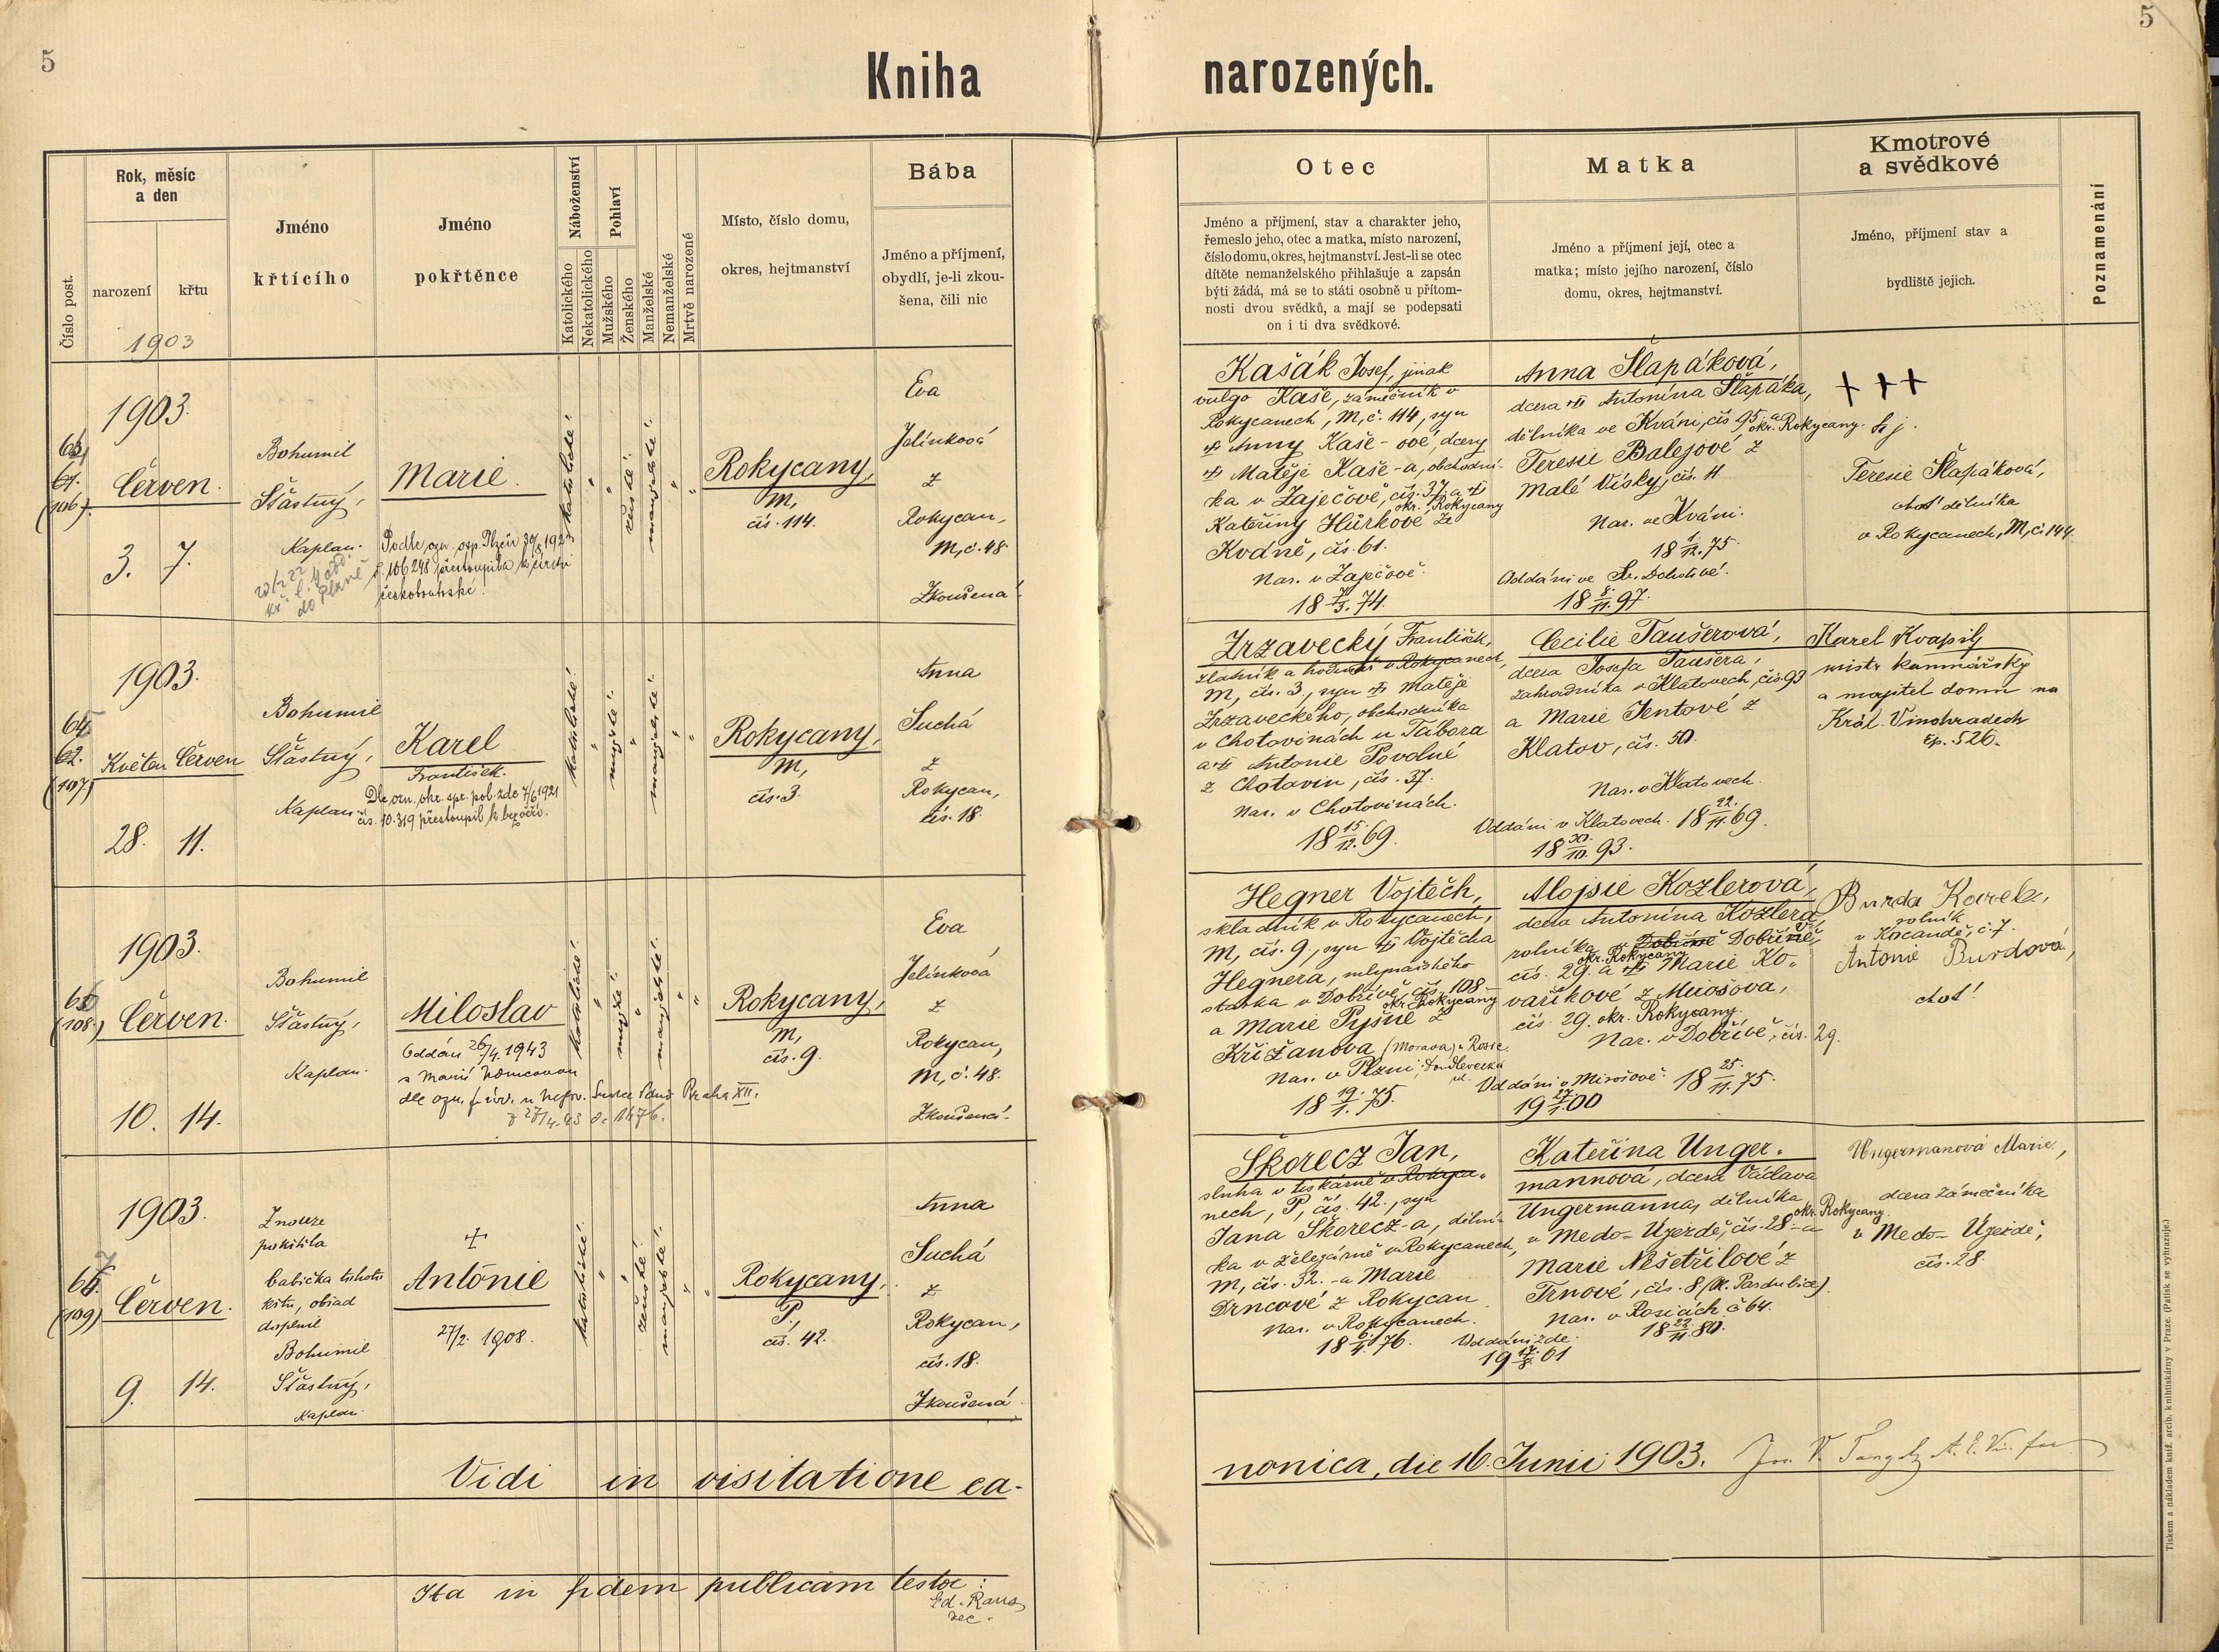 5
5
Kniha narozených.
Číslo post.
Rok, měsíc
a den
narození
křtu
1903
Jméno
křtícího
Jméno
pokřtěnce
Náboženství
Katolického
Nekatolického
Pohlaví
Mužského
Ženského
Manželské
Nemanželské
Mrtvě narozené
Místo, číslo domu,
okres, hejtmanství
Bába
Jméno a příjmení,
obydlí, je-li zkou-
šena, čili nic
Otec
Jméno a příjmení, stav a charakter jeho,
řemeslo jeho, otec a matka, místo narození,
číslo domu, okres, hejtmanství. Jest-li se otec
dítěte nemanželského přihlašuje a zapsán
býti žádá, má se to státi osobně u přítom-
nosti dvou svědků, a mají se podepsati
on i ti dva svědkové.
Matka
Jméno a příjmení její, otec a
matka; místo jejího narození, číslo
domu, okres, hejtmanství.
Kmotrové
a svědkové
Jméno, příjmení stav a
bydliště jejich.
Poznamenání
1903.
(106).
Červen.
3. 7.
Bohumil
Šťastný,
Kaplan.
Marie.
Podle ozn. osp. Plzeň
č. 106248 přestoupila k církvi
českobratrské.
do Plzně
katolické.
ženské.
manželské.
Rokycany,
M,
čís. 114.
Eva
Jelínková
z
Rokycan,
M, č. 48.
Zkoušená
Kašák Josef, jinak
vulgo Kaše, zámečník v
Rokycanech, M, č. 114, syn
Anny Kaše-ové, dcery
Matěje Kaše-a, obchodní-
ka v Zaječově, čís. 37, a
okr. Rokycany
Kateřiny Hůrkové ze
Kváně, čís. 61.
Nar. v Zaječově.
18 7/3. 74.
Anna Šlapáková,
dcera Antonína Šlapáka,
dělníka ve Kváni, čís 95. a
okr. Rokycany.
Teresie Balejové z
Malé Vísky, čís. 11
Nar. ve Kváni.
18 1/12. 75.
Oddáni ve Sv. Dobrotivé.
18 8/11. 97.
+ + +
Teresie Šlapáková,
choť dělníka
v Rokycanech, M, č 144.
1903.
64
62.
(107)
Květen Červen
28. 11.
Bohumil
Šťastný,
Kaplan.
Karel
František.
Dle ozn. okr. spr. pol. zde 7/6 1921
čís. 10.319 přestoupil k bezvěří.
katolické.
mužské.
manželské.
Rokycany,
M,
čís. 3.
Anna
Suchá
z
Rokycan,
čís. 18.
Zrzavecký František,
zlatník a hodinář v Rokycanech,
M, čís. 3., syn Matěje
Zrzaveckého, obchodníka
v Chotovinách u Tábora
a Antonie Povolné
z Chotovin, čís. 37.
Nar. v Chotovinách.
18 15/12. 69.
Cecilie Taušerová,
dcera Josefa Taušera,
zahradníka v Klatovech, čís. 93
a Marie Jentové z
Klatov, čís. 50.
Nar. v Klatovech.
18 22/11. 69.
Oddáni v Klatovech.
18 30/10. 93.
Karel Kvapil
mistr kamnářský
a majitel domu na
Král. Vinohradech
čp. 526.
1903.
(108.)
Červen.
10. 14.
Bohumil
Šťastný,
Kaplan.
Miloslav
Oddán 26/4. 1943
s Marií Němcovou
Praha XII.
katolické.
mužské.
manželské.
Rokycany,
M,
čís. 9.
Eva
Jelínková
z
Rokycan,
M, č. 48.
Zkoušená.
Hegner Vojtěch,
skladník v Rokycanech,
M, čís. 9., syn Vojtěcha
Hegnera, mlynářského
stárka v Dobřívě, čís. 108
okr. Rokycany
a Marie Pyšné z
Křižanova (Morava)
Nar. v Plzni,
18 19/1. 75.
Alojsie Kozlerová,
dcera Antonína Kozlera,
rolníka v Dobřívě,
okr. Rokycany
čís. 29. a Marie Ko-
vaříkové z Mirošova,
čís. 29. okr. Rokycany.
Nar. v Dobřívě, čís. 29.
18 25/11. 75.
Oddáni v Mirošově.
19 27/1. 00
Burda Karel,
rolník
v Kocandě, č 7.
Antonie Burdová,
choť.
1903.
(109)
Červen.
9. 14.
Z nouze
pokřtila
babička tohoto
křtu, obřad
doplnil
Bohumil
Šťastný,
Kaplan.
+
Antonie
27/2. 1908.
katolické.
ženské.
manželské.
Rokycany,
P.
čís. 42.
Anna
Suchá
z
Rokycan,
čís. 18.
Zkoušená.
Škorecz Jan,
sluha v tiskárně v Rokyca-
nech, P, čís. 42., syn
Jana Škorecz-a, dělní-
ka v železárně v Rokycanech,
M, čís. 32. a Marie
Drncové z Rokycan
Nar. v Rokycanech.
18 6/4. 76.
Kateřina Unger-
mannová, dcera Václava
Ungermanna, dělníka
okr. Rokycany.
v Medo-Újezdě, čís. 28 a
Marie Nešetřilové z
Trnové, čís. 8 (okr. Pardubice).
Nar. v Rosicích č 64.
18 22/11. 80.
Oddáni zde.
19 17/8. 01
Ungermanová Marie,
dcera zámečníka
v Medo-Újezdě,
čís. 28.
Vidi in visitatione ca-
nonica, die 16. Junii 1903.
Ita in fidem publicam testor:
Tiskem a nákladem kníž. arcib. knihtiskárny v Praze. (Patisk se vyhrazuje.)